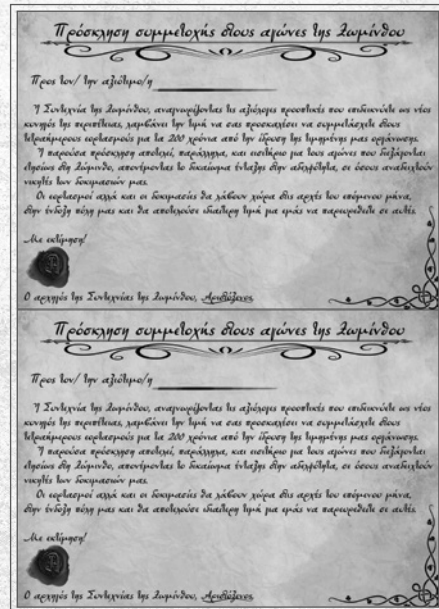 Πρόσκληση συμμετοχής στους αγώνες της Ζωμίνθου
Προς τον/ την αξιότιμο/η
Η Συντεχνία της Ζωμίνθου, αναγνωρίζοντας τις αξιόλογες προοπτικές που επιδεικνύετε ως νέος
κυνηγός της περιπέτειας, λαμβάνει την τιμή να σας προσκαλέσει να συμμετάσχετε στους
τετραήμερους εορτασμούς για τα 200 χρόνια από την ίδρυση της τιμημένης μας οργάνωσης.
Η παρούσα πρόσκληση αποτελεί, παράλληλα, και εισιτήριο για τους αγώνες που διεξάγονται
ετησίως στη Ζώμινθο, απονέμοντας το δικαίωμα ένταξης στην αδελφότητα, σε όσους αναδειχτούν
νικητές των δοκιμασιών μας.
Οι εορτασμοί αλλά και οι δοκιμασίες θα λάβουν χώρα στις αρχές του επόμενου μήνα,
στην ένδοξη πόλη μας και θα αποτελούσε ιδιαίτερη τιμή για εμάς να παρευρεθείτε σε αυτές.
Με εκτίμηση!
Ο αρχηγός της Συντεχνίας της Ζωμίνθου, Αριστόξενος
Πρόσκληση συμμετοχής στους αγώνες της Ζωμίνθου
Προς τον/ την αξιότιμο/η
Η Συντεχνία της Ζωμίνθου, αναγνωρίζοντας τις αξιόλογες προοπτικές που επιδεικνύετε ως νέος
κυνηγός της περιπέτειας, λαμβάνει την τιμή να σας προσκαλέσει να συμμετάσχετε στους
τετραήμερους εορτασμούς για τα 200 χρόνια από την ίδρυση της τιμημένης μας οργάνωσης.
Η παρούσα πρόσκληση αποτελεί, παράλληλα, και εισιτήριο για τους αγώνες που διεξάγονται
ετησίως στη Ζώμινθο, απονέμοντας το δικαίωμα ένταξης στην αδελφότητα, σε όσους αναδειχτούν
νικητές των δοκιμασιών μας.
Οι εορτασμοί αλλά και οι δοκιμασίες θα λάβουν χώρα στις αρχές του επόμενου μήνα,
στην ένδοξη πόλη μας και θα αποτελούσε ιδιαίτερη τιμή για εμάς να παρευρεθείτε σε αυτές.
Με εκτίμηση!
Ο αρχηγός της Συντεχνίας της Ζωμίνθου, Αριστόξενος